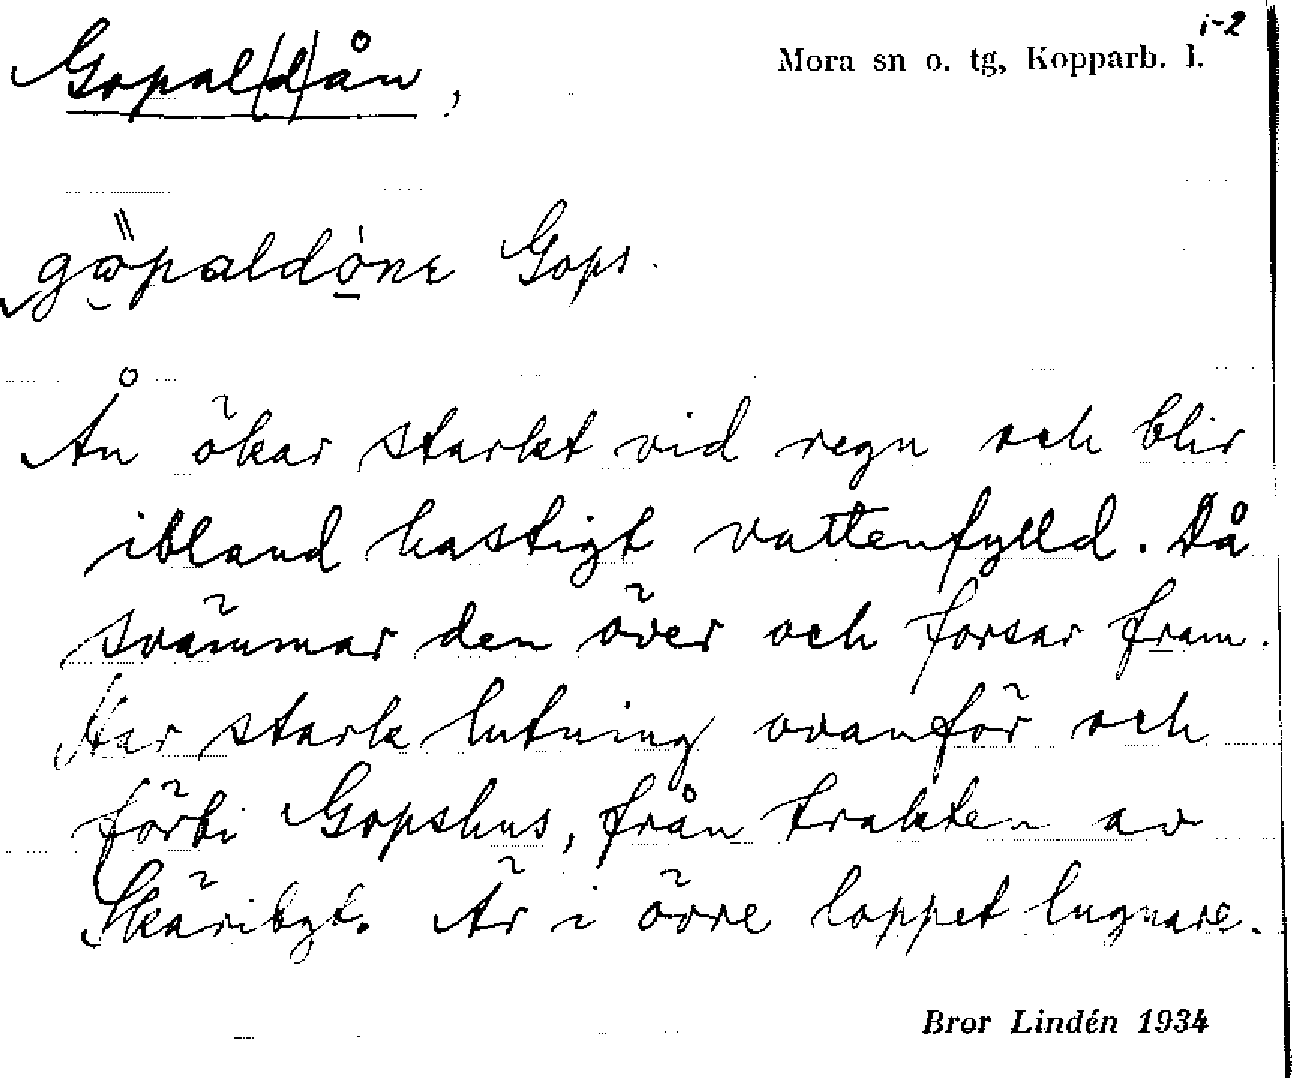 i-2
Gopal(d)ån,
Mora sn o. tg, Kopparb. l.
göpaldóne Gops.
Ån ökar starkt vid regn och blir
ibland hastigt vattenfylld. Då
svämmar den över och forsar fram.
Har stark lutning ovanför och
förbi Gopshus, från trakten av
Skäribyt. Är i övre loppet lugnare.
Bror Lindén 1934